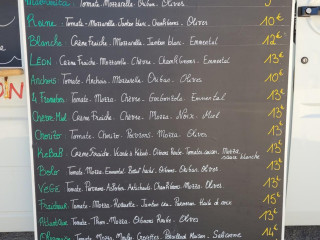 Tomate - Mozzarella
Reine Tomate - Mozzarella - Jambon blanc - Champignons - Olives 10€
Blanche Crème Fraîche - Mozzarella - Jambon blanc - Emmental 12€
Léon Crème Fraîche - Mozzarella - Chèvre - Champignons - Emmental 13€
Anchois Tomate - Anchois - Mozzarella - Origan - Olives 10€
4 Fromages Tomate - Mozza - Chèvre - Gorgonzola - Emmental 13€
Chèvre Miel Crème Fraîche - Chèvre - Mozza - Noix - Miel 13€
Chorizo Tomate - Chorizo - Poivrons - Mozza - Olives 13€
KeBaB Crème Fraîche - Viande à Kebab - Oignons Rouge - Tomates - Mozza 13€
sauce blanche
Bolo Tomate - Mozza - Emmental - Olives 13€
Végé Tomate - Artichauts - Champignons - Mozza - Olives 13€
Tomate - Mozza - Roquette - Jambon cru - Parmesan 15€
Atlantique Tomate - Thon - Mozza - Oignons Rouge - Olives 13€
Tomate - Mozza - Crevettes - 14€